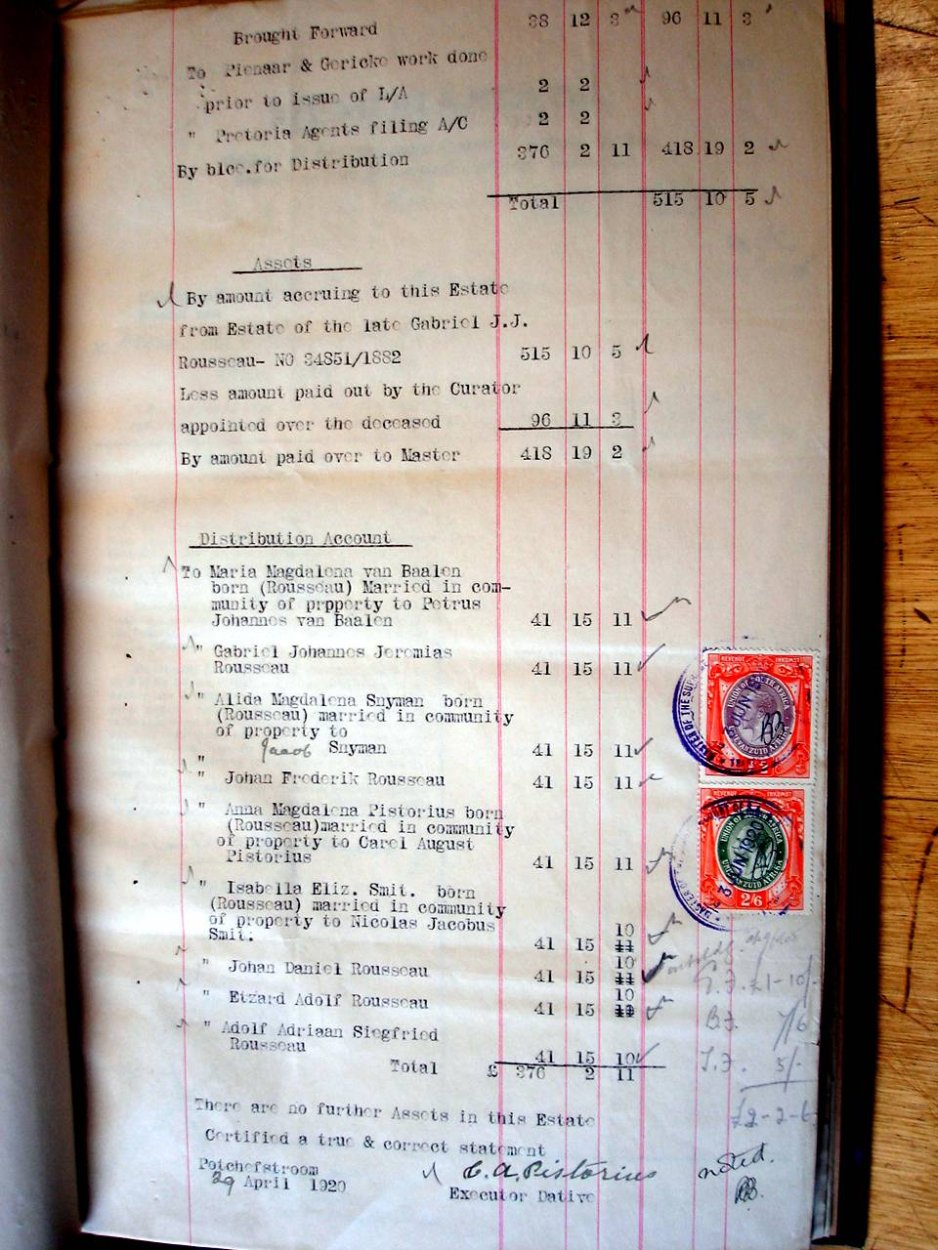 Brought Forward 38 12 3 96 11 3
To Pienaar & Gericke work done
prior to issue of L/A 2 2
" Pretoria Agents filing A/C 2 2
By blce.for Distribution 376 2 11 418 19 2
Total 515 10 5
Assets
By amount accruing to this Estate
from Estate of the late Gabriel J.J.
Rousseau- NO 34851/1882 515 10 5
Less amount paid out by the Curator
appointed over the deceased 96 11 3
By amount paid over to Master 418 19 2
Distribution Account
To Maria Magdalena van Baalen
born (Rousseau) Married in com-
munity of prpperty to Petrus
Johannes van Baalen 41 15 11
" Gabriel Johannes Jeremias
Rousseau 41 15 11
" Alida Magdalena Snyman born
(Rousseau) married in community
of property to
Jacob Snyman 41 15 11
"
" Johan Frederik Rousseau 41 15 11
" Anna Magdalena Pistorius born
(Rousseau)married in community
of property to Carel August
Pistorius 41 15 11
" Isabella Eliz. Smit. born
(Rousseau) married in community
of property to Nicolas Jacobus
Smit. 41 15 11 10
" Johan Daniel Rousseau 41 15 11 10
" Etzard Adolf Rousseau 41 15 11 10
" Adolf Adriaan Siegfried
Rousseau 41 15 10
Total £ 376 2 11
There are no further Assets in this Estate
Certified a true & correct statement
Potchefstroom
29 April 1920
C.A.Pistorius
Executor Dative
REVENUE INKOMST
UNION OF SOUTH AFRICA
UNIE VAN ZUID AFRIKA
JUN 19
MASTER OF THE SUP
REVENUE INKOMST
UNION OF SOUTH AFRICA
UNIE VAN ZUID AFRIKA
2/6
JUN 1920
£1-10/-
B.F. 7/6
T.F. 5/-
£2-2-6
noted.